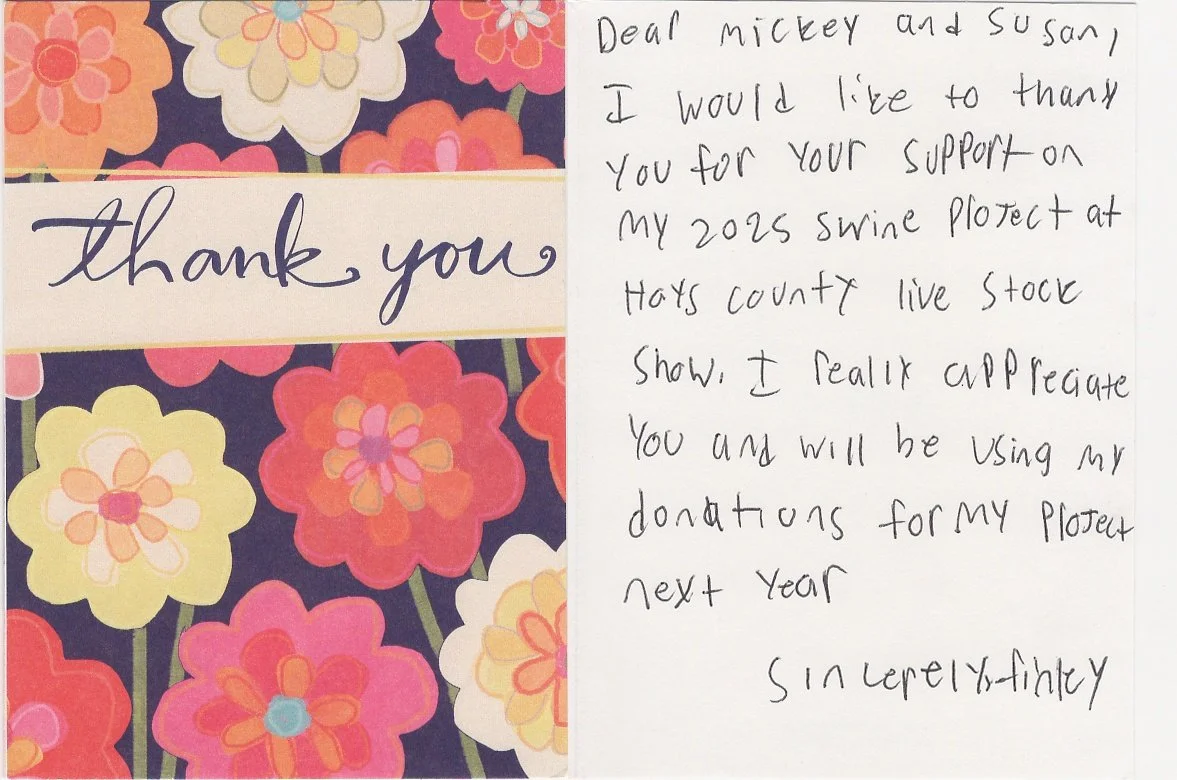 thank you
Dear mickey and Susan,
I would like to thank
You for your support on
My 2025 swine Project at
Hays county live Stock
Show. I really appreciate
You and will be using my
donations for My Project
next Year
Sincerely, finley